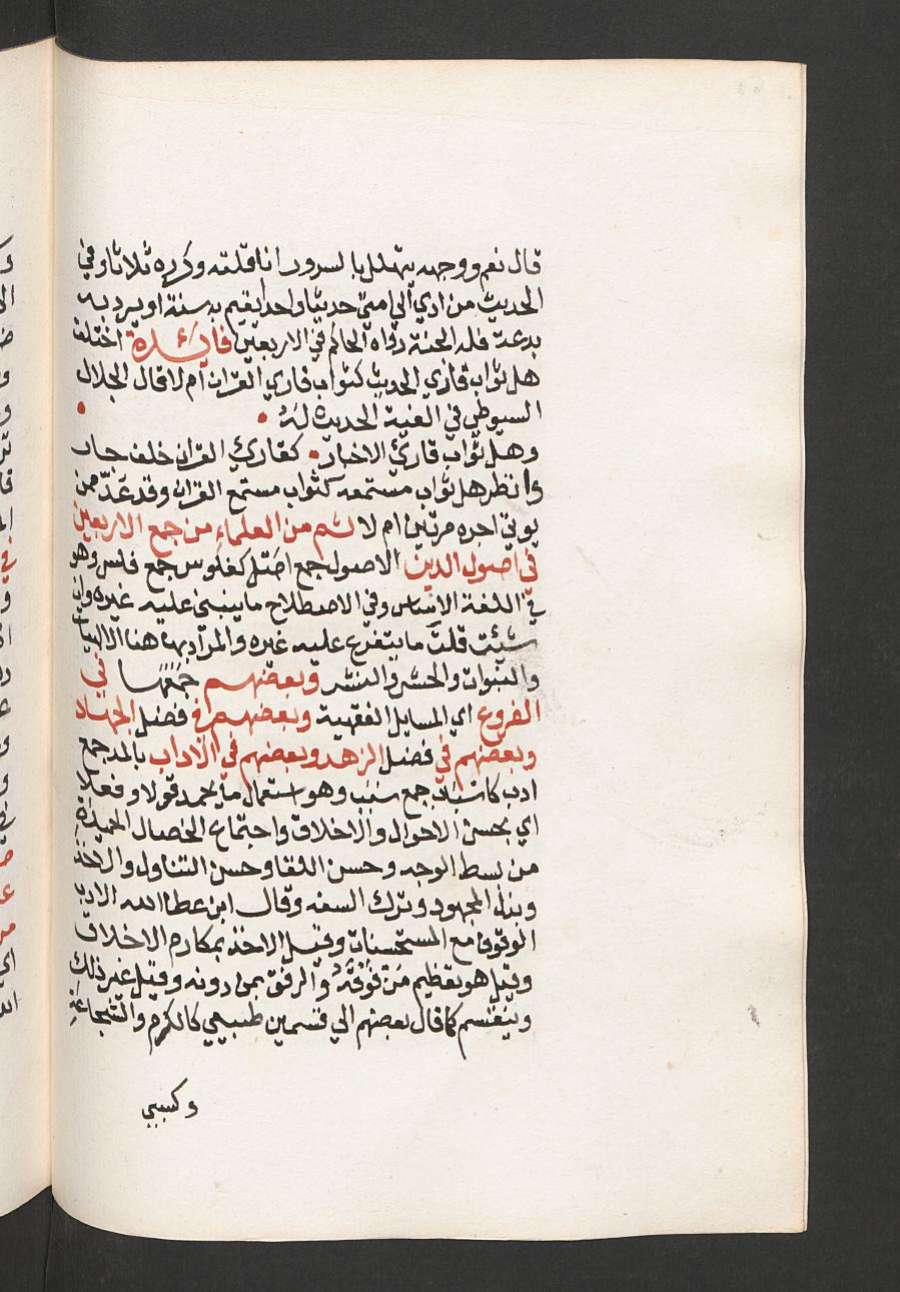 قال نعم ووجهه يتهلل بالسرور انا قلته وكرره ثلاثا وفي
الحديث من ادي الي امتي حديثا واحدا يقيم به سنة او يرد به
بدعة فله الجنة رواه الحاكم في الاربعين فائدة اختلف
هل ثواب قاري الحديث كثواب قاري القران ام لا قال الجلال
السيوطي في الفية الحديث له
وهل ثواب قارئ الاخبار كقارئ القران خلف جار
وانظر هل ثواب مستمعه كثواب مستمع القران وقد عدّ من
يوتي اجره مرتين ام لا ثم من العلماء من جمع الاربعين
في اصول الدين الاصول جمع اصل كفلوس جمع فلس وهو
في اللغة الاساس وفي الاصطلاح ما ينبني عليه غيره وان
شئت قلت ما يتفرع عليه غيره والمراد بها هنا الالهيات
والنبوات والحشر والنشر وبعضهم جمعها في
الفروع اي المسايل الفقهية وبعضهم في فضل الجهاد
وبعضهم في فضل الزهد وبعضهم في الاداب بالمد جمع
ادب كاسباب جمع سبب وهو استعمال ما يحمد قولا وفعلا
اي بحسن الاحوال والاخلاق واجتماع الخصال الحميدة
من بسط الوجه وحسن اللقا وحسن التناول والاخذ
وبذل المجهود وترك السفه وقال ابن عطا الله الادب
الوقوف مع المستحسنات وقيل الاخذ بمكارم الاخلاق
وقيل هو تعظيم من فوقه والرفق بمن دونه وقيل غير ذلك
وينقسم كما قال بعضهم الي قسمين طبيعي كالكرم والشجاعة
وكسبي